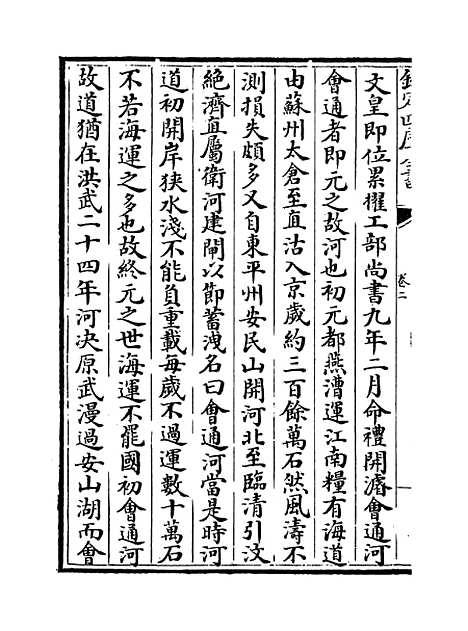 欽定四庫全書
卷二
文皇即位累擢工部尚書九年二月命禮開濬會通河
會通者即元之故河也初元都燕漕運江南糧有海道
由蘇州太倉至直沽入京歲約三百餘萬石然風濤不
測損失頗多又自東平州安民山開河北至臨清引汶
絶濟直屬衛河建閘以節蓄洩名曰會通河當是時河
道初開岸狹水淺不能負重載每歲不過運數十萬石
不若海運之多也故終元之世海運不罷國初會通河
故道猶在洪武二十四年河决原武漫過安山湖而會